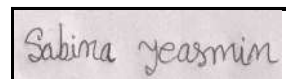 Sabina yeasmin